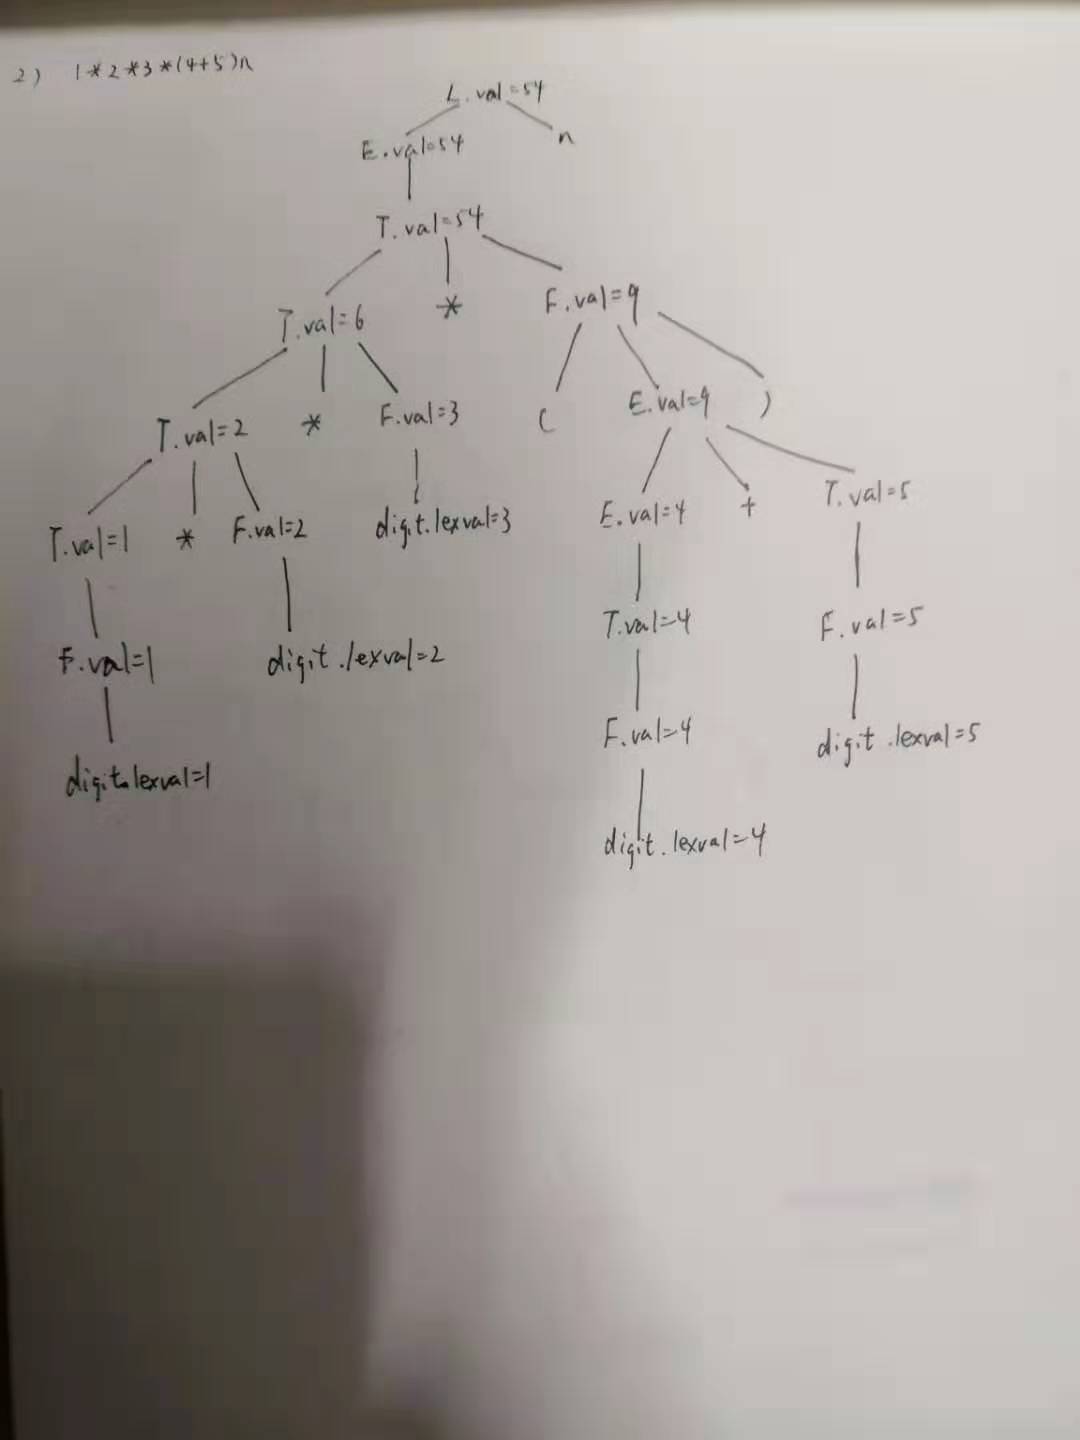 2) 1*2*3*(4+5)n
L.val=54
E.val=54 n
T.val=54
T.val=6 * F.val=9
T.val=2 * F.val=3 ( E.val=9 )
T.val=1 * F.val=2 digit.lexval=3 E.val=4 + T.val=5
F.val=1 digit.lexval=2 T.val=4 F.val=5
digit.lexval=1 F.val=4 digit.lexval=5
digit.lexval=4